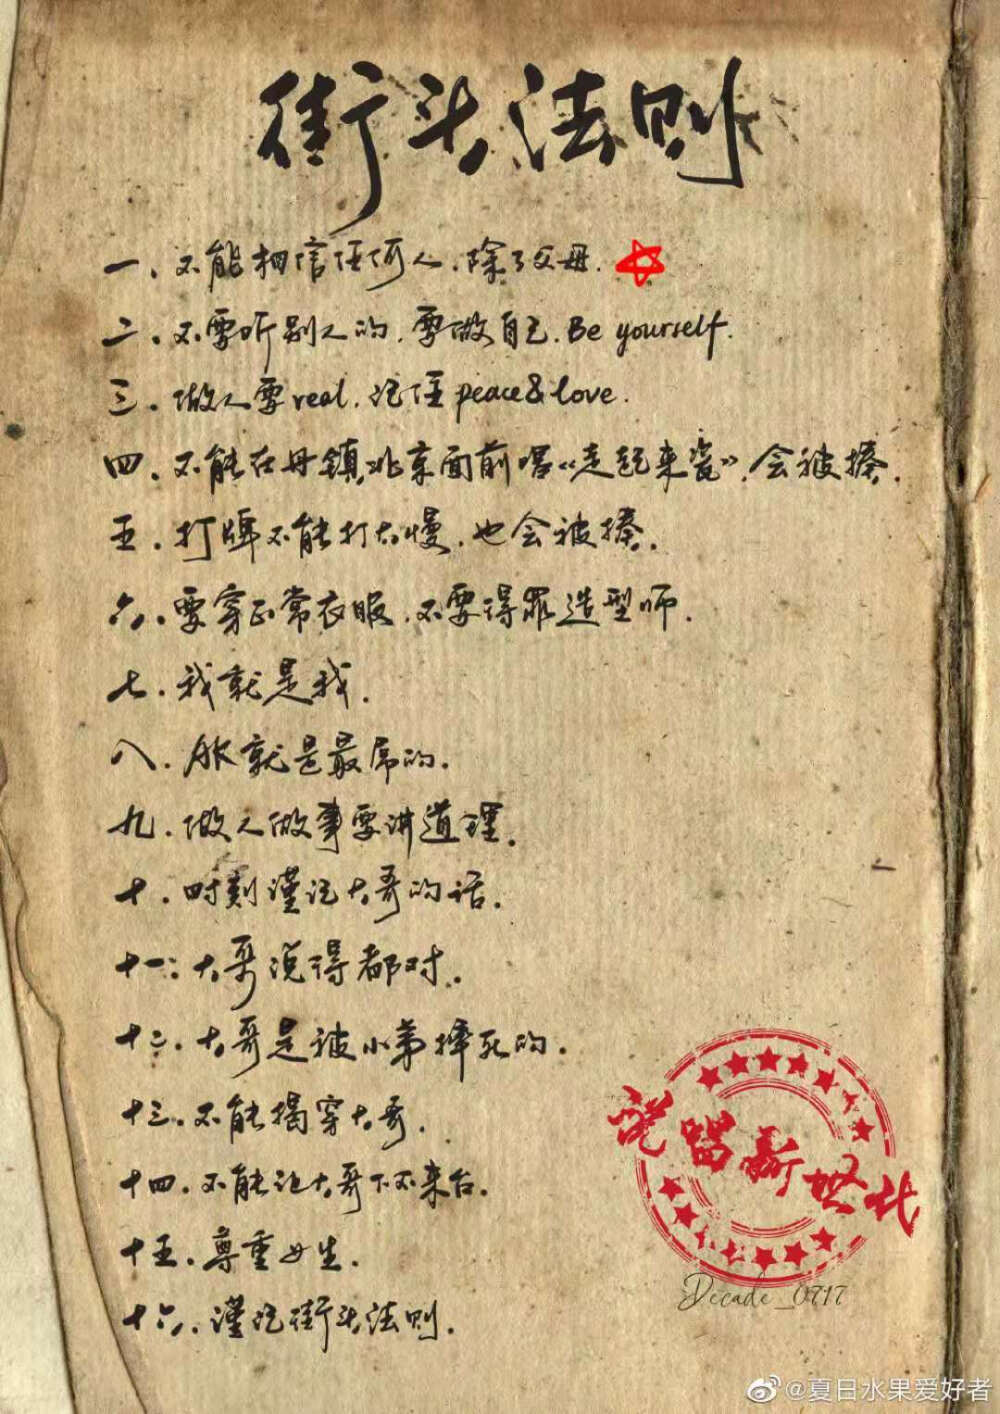 街头法则
一、不能相信任何人，除了父母.
二、不要听别人的，要做自己，Be yourself.
三、做人要real，记住peace&love.
四、不能在丹镇北京面前唱《走起来瓷》，会被揍.
五、打牌不能打太慢，也会被揍.
六、要穿正常衣服，不要得罪造型师.
七、我就是我.
八、AK就是最屌的.
九、做人做事要讲道理.
十、时刻谨记大哥的话.
十一、大哥说得都对.
十二、大哥是被小弟捧死的.
十三、不能揭穿大哥.
十四、不能让大哥下不来台.
十五、尊重女生.
十六、谨记街头法则.
说唱新世代
Decade_0717
@夏日水果爱好者